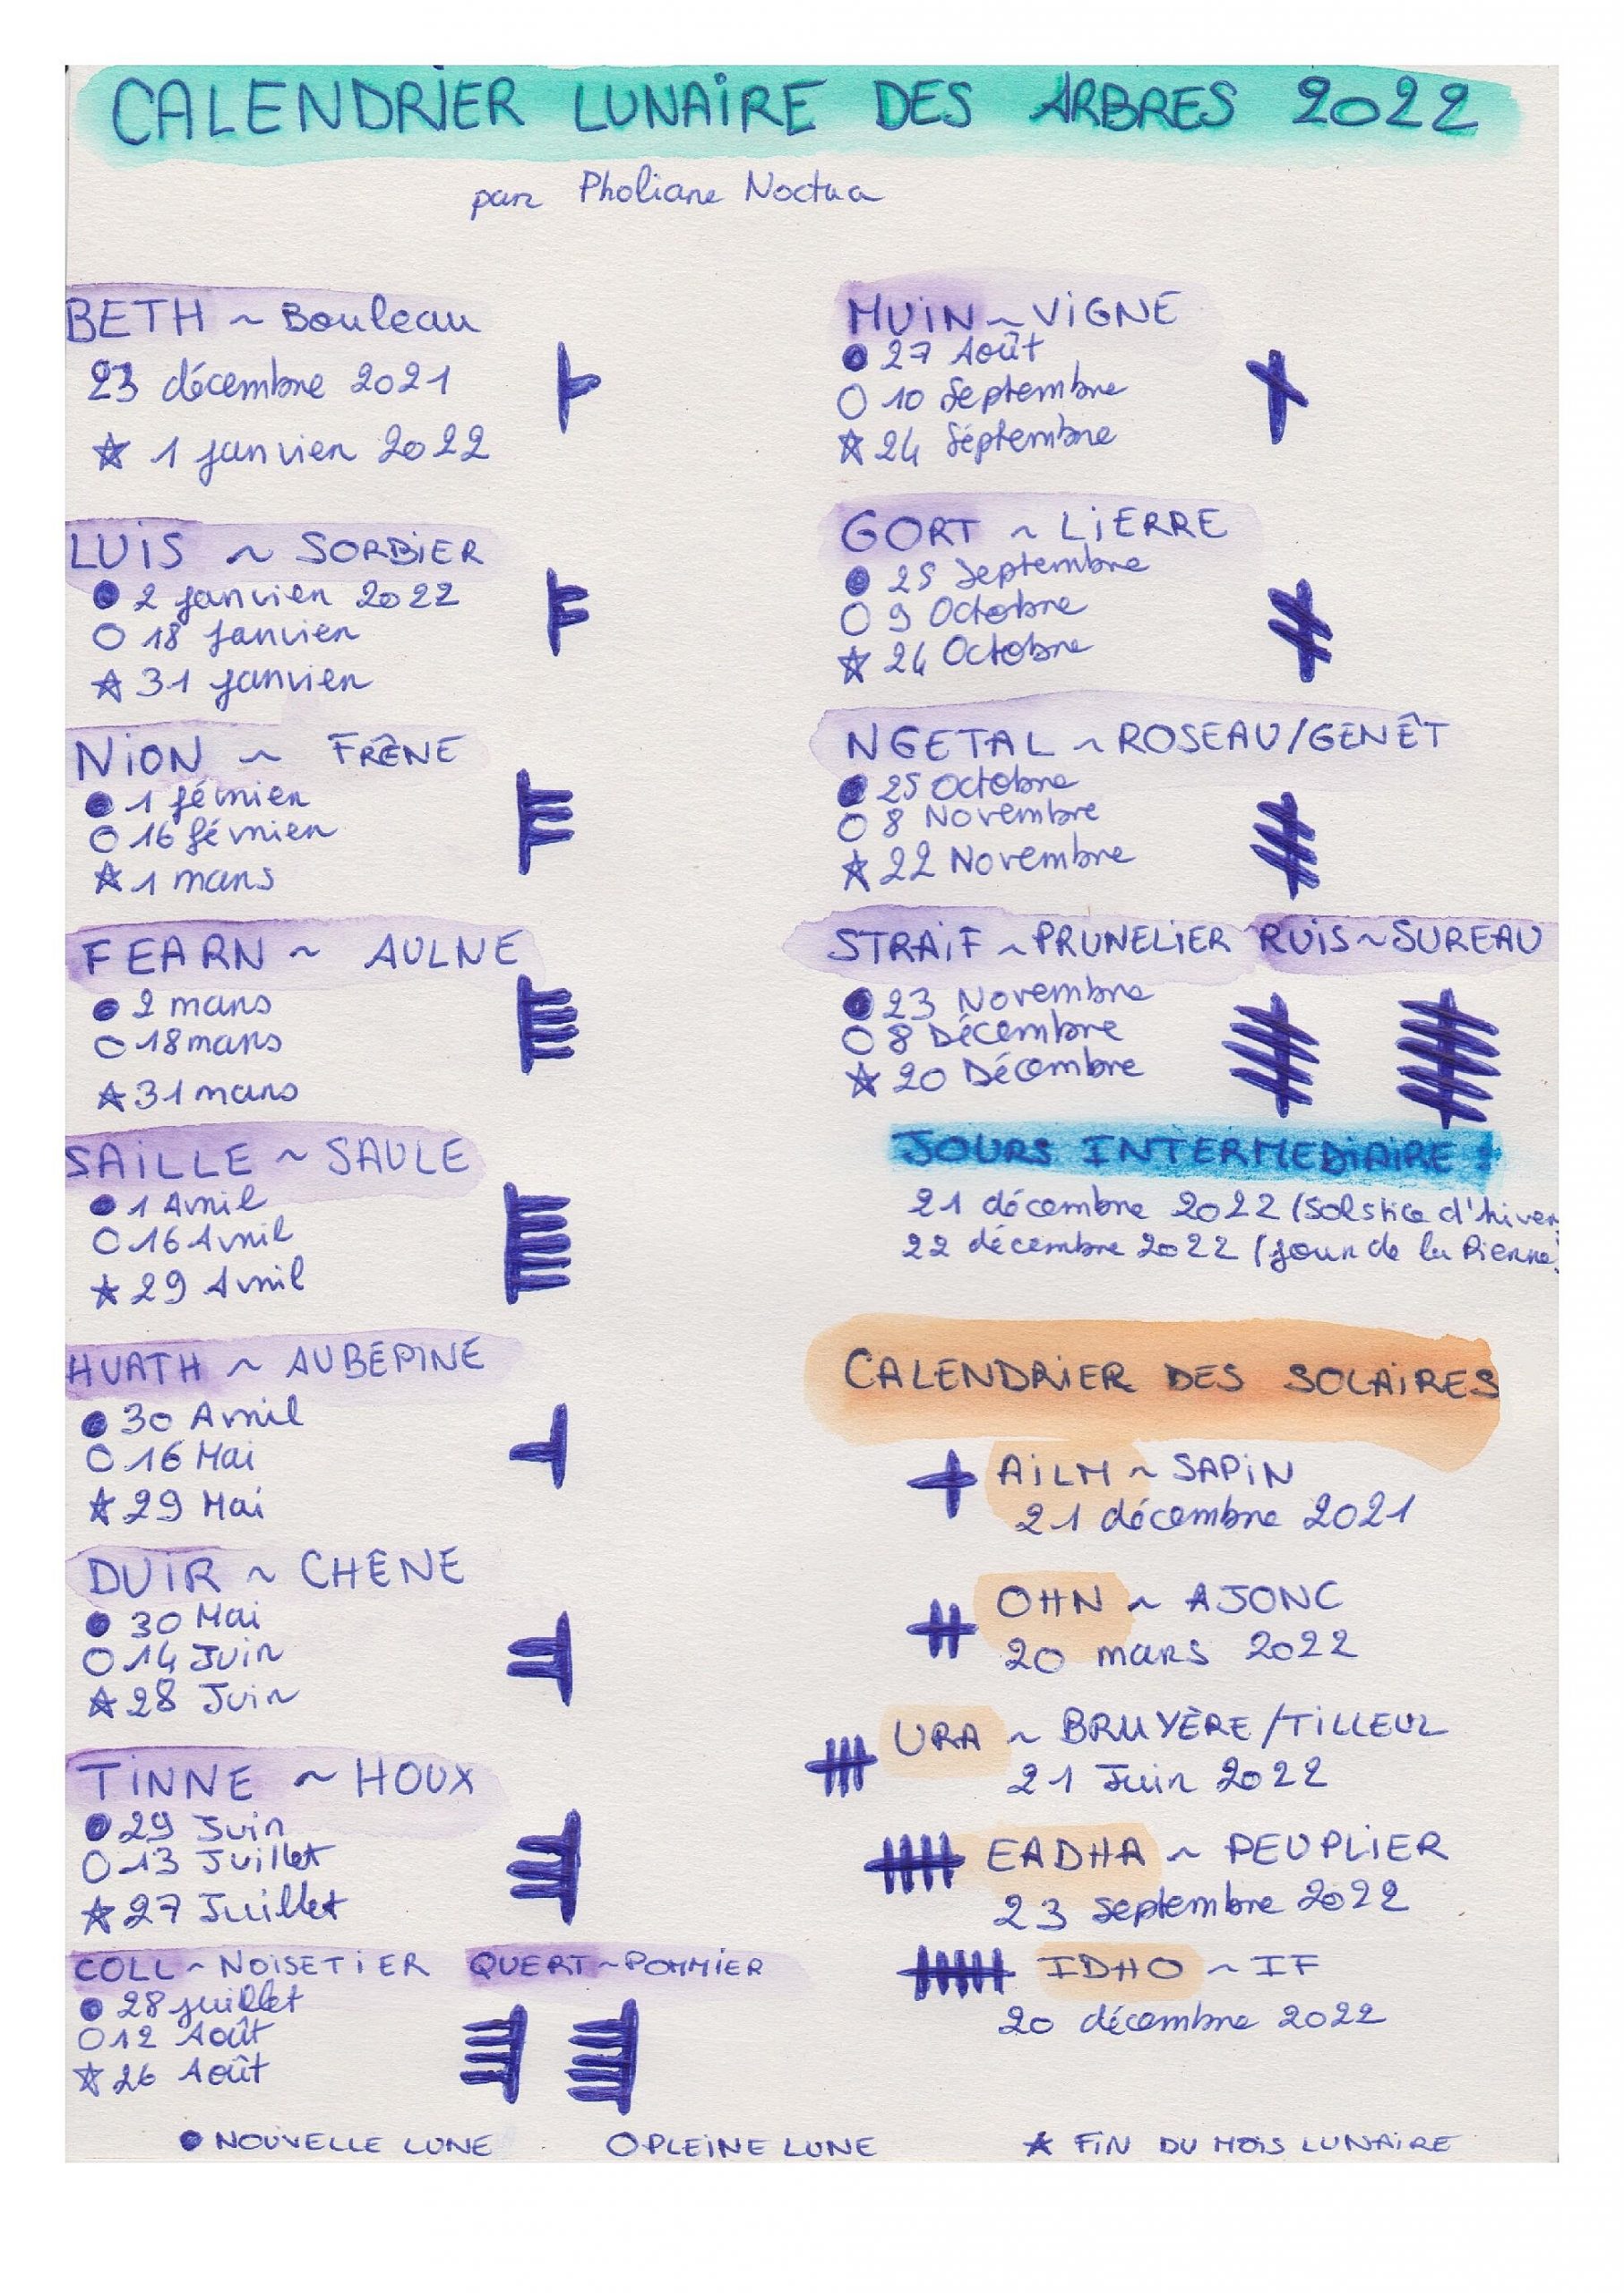 CALENDRIER LUNAIRE DES ARBRES 2022
par Pholiane Noctua
BETH ~ Bouleau
23 décembre 2021
☆ 1 janvier 2022
LUIS ~ SORBIER
● 2 janvier 2022
○ 18 janvier
☆ 31 janvier
NION ~ FRÊNE
● 1 février
○ 16 février
☆ 1 mars
FEARN ~ AULNE
● 2 mars
○ 18 mars
☆ 31 mars
SAILLE ~ SAULE
● 1 Avril
○ 16 Avril
☆ 29 Avril
HUATH ~ AUBEPINE
● 30 Avril
○ 16 Mai
☆ 29 Mai
DUIR ~ CHÊNE
● 30 Mai
○ 14 Juin
☆ 28 Juin
TINNE ~ HOUX
● 29 Juin
○ 13 Juillet
☆ 27 Juillet
COLL ~ NOISETIER QUERT ~ POMMIER
● 28 juillet
○ 12 Août
☆ 26 Août
MUIN ~ VIGNE
● 27 Août
○ 10 Septembre
☆ 24 Séptembre
GORT ~ LIERRE
● 25 Septembre
○ 9 Octobre
☆ 24 Octobre
NGETAL ~ ROSEAU/GENÊT
● 25 Octobre
○ 8 Novembre
☆ 22 Novembre
STRAIF ~ PRUNELIER RUIS ~ SUREAU
● 23 Novembre
○ 8 Décembre
☆ 20 Décembre
JOURS INTERMEDIAIRE :
21 décembre 2022 (Solstice d'hiver
22 décembre 2022 (jour de la Pierre)
CALENDRIER DES SOLAIRES
AILM ~ SAPIN
21 décembre 2021
OHN ~ AJONC
20 mars 2022
URA ~ BRUYÈRE/TILLEUL
21 Juin 2022
EADHA ~ PEUPLIER
23 septembre 2022
IDHO ~ IF
20 décembre 2022
● NOUVELLE LUNE ○ PLEINE LUNE ☆ FIN DU MOIS LUNAIRE